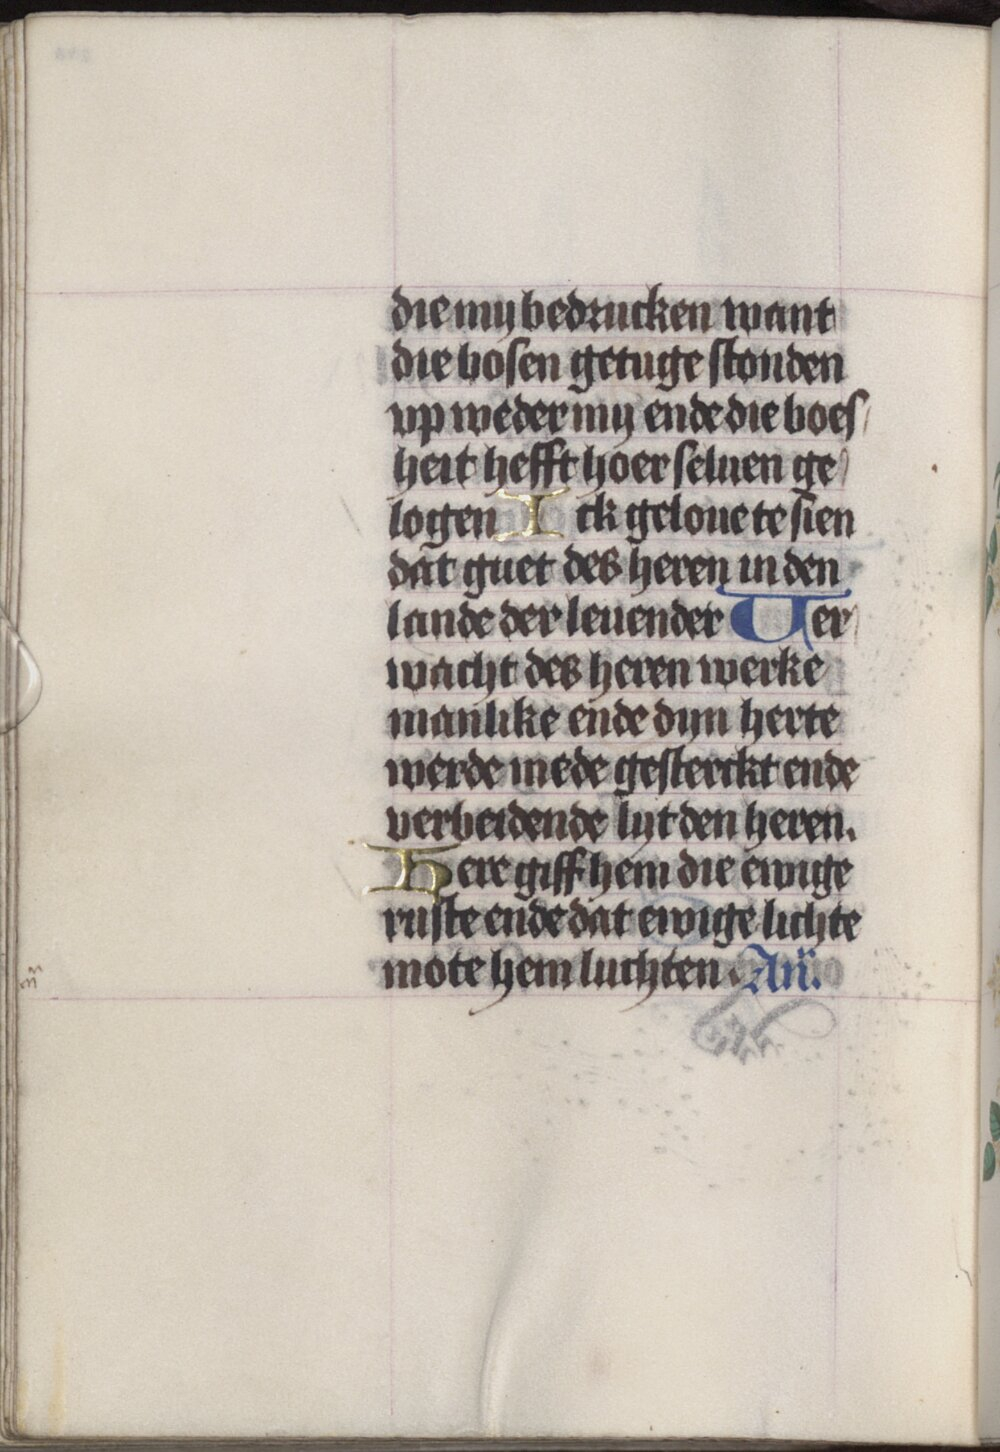 die my bedrucken want
die bosen getuge stonden
vp weder my ende die boes/
heit hefft hoer seluen ge/
logen Ick geloue te sien
dat guet des heren in den
lande der leuender Ver/
wacht des heren werke
manlike ende dyn herte
werde mede gesterckt ende
verbeidende lyt den heren.
Here giff hem die ewige
ruste ende dat ewige lichte
mote hem luchten. An̄.